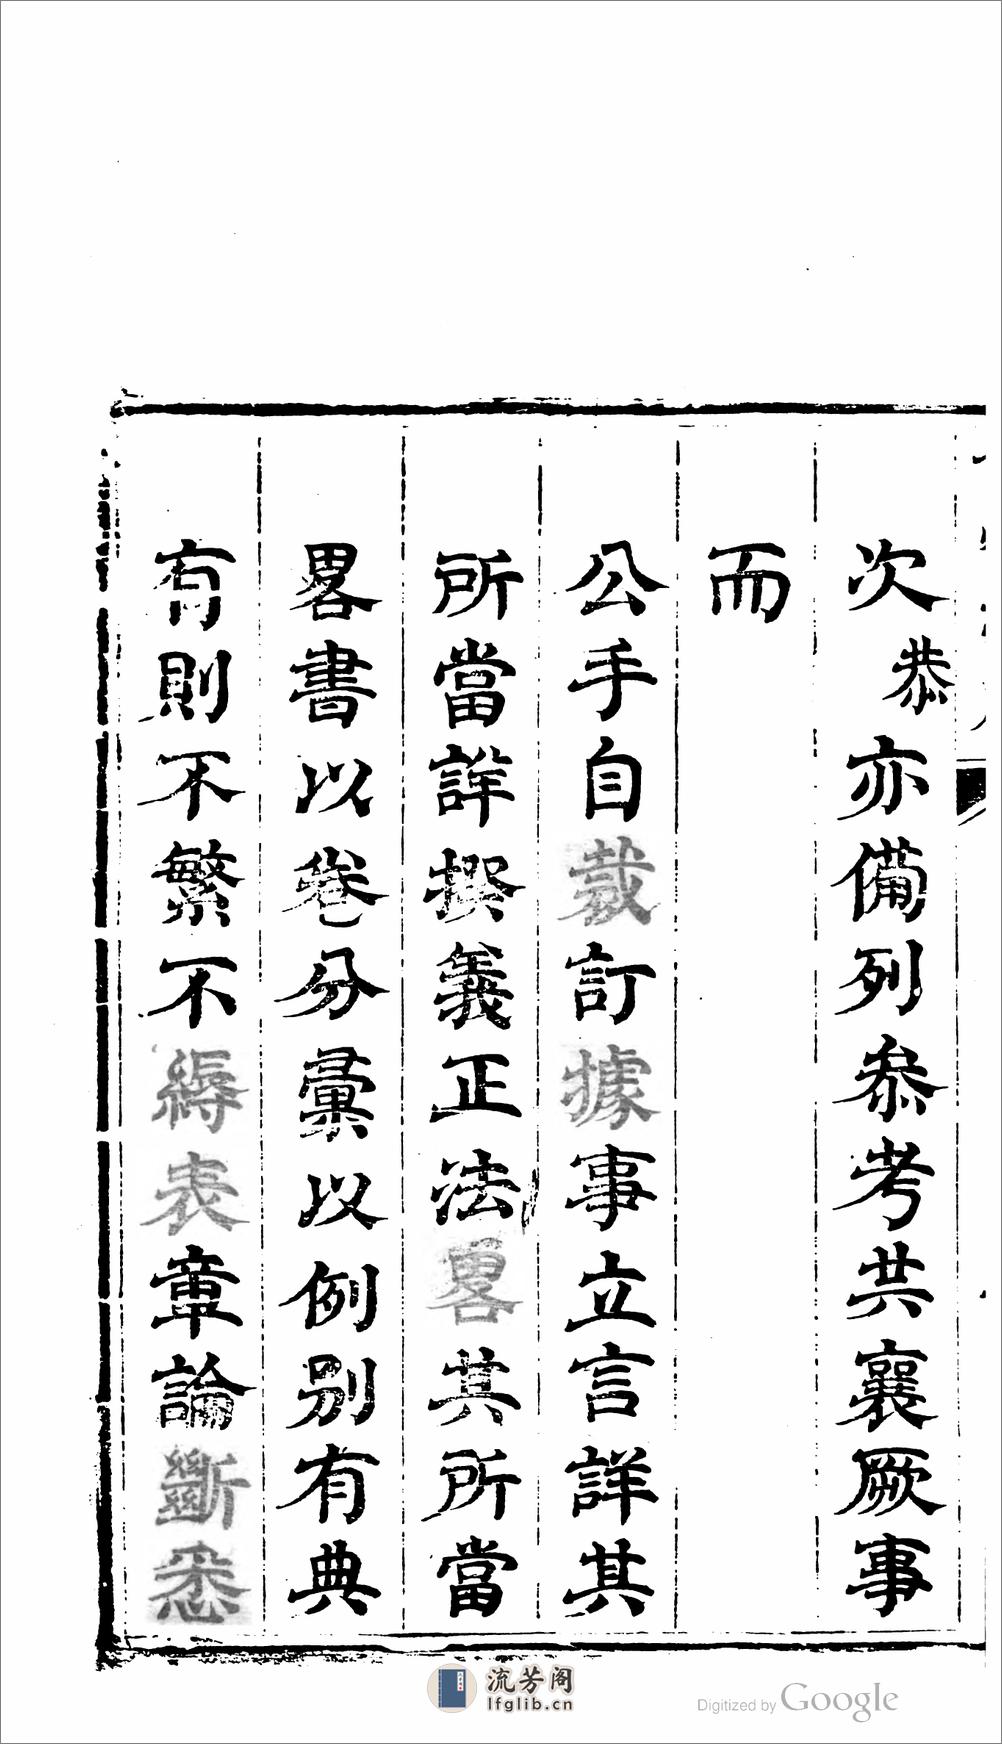 次恭亦備列叅考共襄厥事
而
公手自裁訂據事立言詳其
所當詳撰義正法畧其所當
畧書以卷分彙以例別有典
有則不繁不縟表章論斷悉
流芳阁
lfglib.cn
Digitized by Google